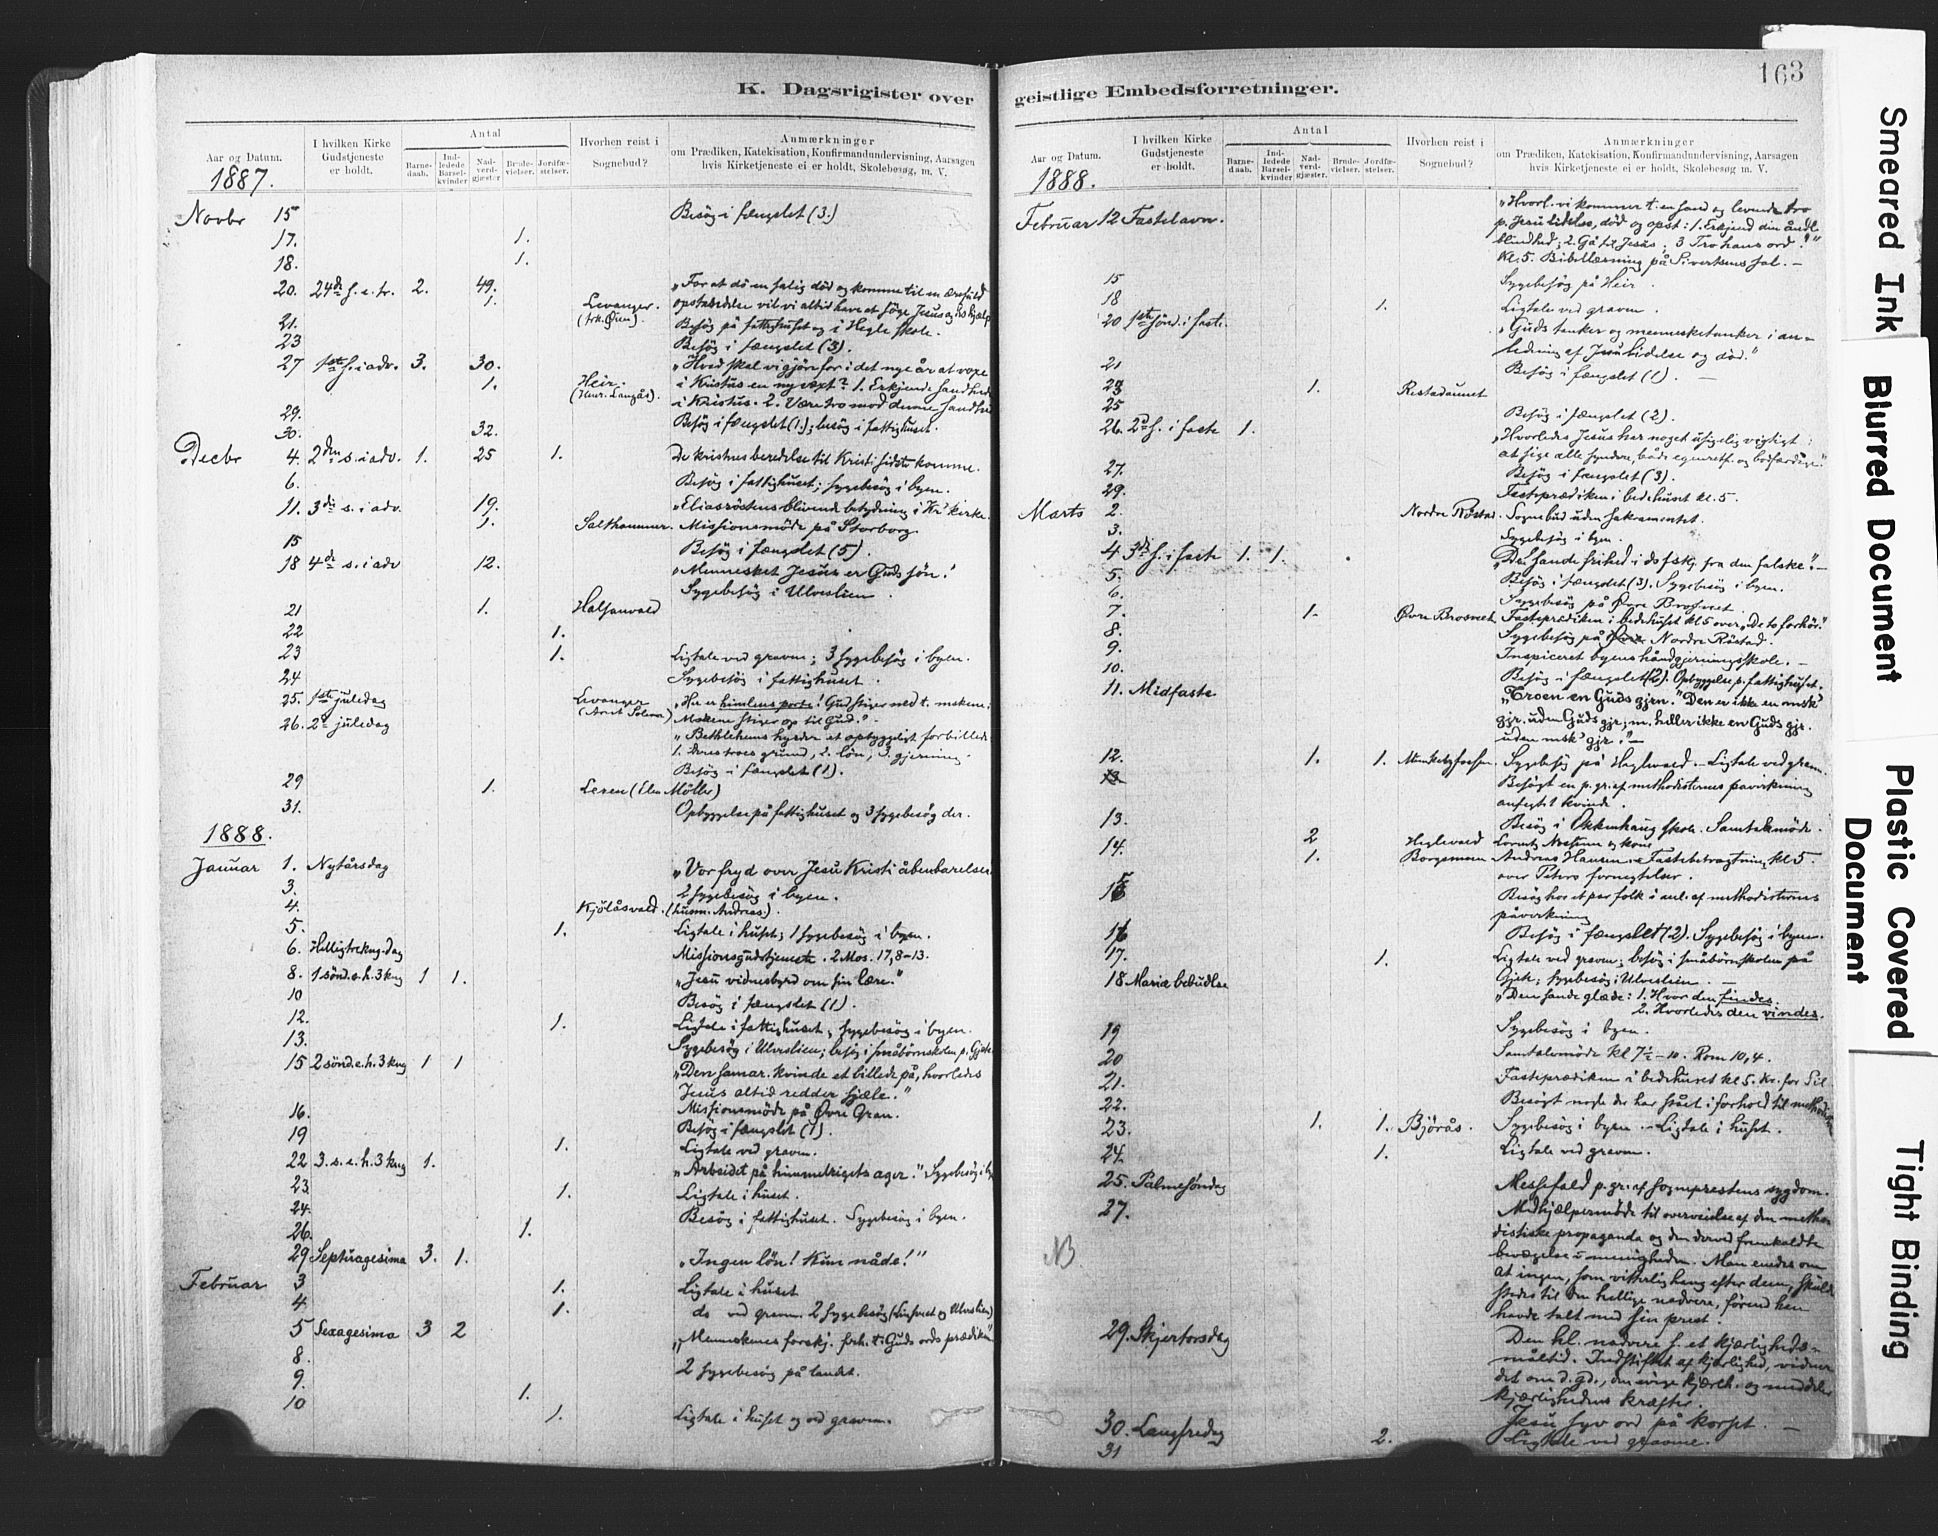 K. Dagsrigister over
Aar og Datum.
I hvilken Kirke
Gudstjeneste
er holdt.
Antal
Barne-
daab.
Ind-
ledede
Barsel-
kvinder
Nad-
verd-
gjæster
Brude-
vielser.
Jordfæ-
stelser.
Hvorhen reist i
Sognebud?
Anmærkninger
om Prædiken, Katekisation, Konfirmandundervisning, Aarsagen
hvis Kirketjeneste ei er holdt, Skolebesøg, m. V.
1887.
Novbr 15 Besög i fængslet (3.)
17. 1.
18. 1.
20. 24de s. e. tr. 2. 49. „For at dö en salig död og komme til en ærefuld
1. Levanger. opstandelse vil vi altid have at söge Jesus og
21. Besög på fattighuset og i Hegle skole.
23 Besög i fængslet (3).
27 1ste s. i adv. 3. 30. „Hvad skal vi gjöre for i det nye år at voxe
1. Heir. i Kristus en ny væxt? 1. Erkjende
(Henr. Langås). i Kristus. 2. Være tro mod denne
29. Besög i fængslet (1.); besög i fattighuset.
30. 32.
Decbr 4. 2den s. i adv. 1. 25 1. De kristnes beredelse til Kristi sidste komme.
6. Besög i fattighuset; sygebesög i byen.
11. 3die s. i adv. 19. „Eliasröstens blivende betydning i Kr' kirke.
1. Salthammer. Missionsmöde på Storborg
15 Besög i fængslet (5).
18 4de s. i adv 12. „Mennesket Jesus er Guds sön.
Sygebesög i Ulveslien.
21 1. Halsanvald
22 1.
23 1. Ligtale ved graven; 3 sygebesög i byen.
24 Sygebesög i fattighuset.
25. 1ste juledag Levanger „Her er himlens porte! Gud stiger ned t. mskene;
26. 2d juledag Mskene stiger op til Gud."
„Bethlehems hyrder et opbyggeligt forbillede
1. deres troes grund, 2. lön, 3. gjerning.
Besög i fængslet (1).
29 1. Leren (Elen Möller)
31. Opbyggelse på fattighuset og 3 sygebesög der.
1888.
Januar 1. Nytårsdag „Vor fryd over Jesu Kristi åbenbarelse
3. 2 sygebesög i byen.
4. Kjölåsvald. (husm. Andreas).
5. 1. Ligtale i huset; 1 sygebesög i byen.
6. Helligtrekng.dag Missionsgudstjeneste. 2 Mos. 17, 8–13.
8. 1 sönd. e. h. 3 kng 1 1. „Jesu vidnesbyrd om sin lære."
10 Besög i fængslet (1).
12. 1. Ligtale i fattighuset; sygebesög i byen.
13. Sygebesög i Ulveslien; besög i småbörnskolen p. Gjek
15 2 sönd. e. h. 3 kng 1 1 „Den samar. kvinde et billede på, hvorledes
Jesus altid redder sjæle."
16. Missionsmöde på Övre Gran.
19 Besög i fængslet (1).
1. Ligtale ved graven.
22 3. s. e. h. 3 kng 1. „Arbeidet på himmelrigets ager." Sygebesög i
23. 1. Ligtale i huset.
24. Besög i fattighuset. Sygebesög i byen.
26. 1.
29 Septuagesima 3. 1. „Ingen lön! Kun nåde!"
Februar 3 1. Ligtale i huset
4 1. do ved graven. 2 sygebesög
5 Sexagesima 3 2 „Menneskenes forskj. forh. t. Guds ords prædiken"
8. 2 sygebesög på landet.
9. 1.
10 1. Ligtale i huset og ved graven.
geistlige Embedsforretninger.
163
Aar og Datum.
I hvilken Kirke
Gudstjeneste
er holdt.
Antal
Barne-
daab.
Ind-
ledede
Barsel-
kvinder
Nad-
verd-
gjæster.
Brude-
vielser.
Jordfæ-
stelser.
Hvorhen reist i
Sognebud?
Anmærkninger
om Prædiken, Katekisation, Konfirmandundervisning, Aarsagen
hvis Kirketjeneste ei er holdt, Skolebesøg m. V.
1888.
Februar 12 Fastelavn. „Hvorl. vi kommer t. en sand og levende tro
p. Jesu lidelse, död og opst: 1. Erkjend din åndl.
blindhed; 2. Gå til Jesus; 3 Tro hans ord!"
Kl. 5. Bibellæsning på Sivertsens sal. –
15 Sygebesög på Heir.
18 1. Ligtale ved graven.
20 1ste sönd. i faste „Guds tanker og mennesketanker i an-
ledning af Jesu lidelse og död."
21 Besög i fængslet (1). –
23 1. Restadaunet
25 Besög i fængslet (2).
26. 2d s. i faste 1. „Hvorledes Jesus har noget usigelig vigtigt:
at sige alle syndere, både egenretf. og bodfærdige."
27. Besög i fængslet (3).
29. Fasteprædiken i bedehuset kl. 5.
Marts 2. Nordre Röstad. Sognebud uden sakramentet.
3. Sygebesög i byen.
4 3die s. i faste 1. 1. „Den sande frihed i ds fskj. fra den falske". –
5. Besög i fængslet (3). Sygebesög i byen.
6. Sygebesög på Övre Brosvet.
7. 1. Övre Brosvet Fasteprædiken i bedehuset kl 5 over „De to forhör."
8. Sygebesög på Nordre Röstad.
9. Inspiceret byens håndgjerningsskole. –
10. Besög i fængslet (2). Opbyggelse p. fattighuset.
11. Midfaste „Troen en Guds gjern." Den er ikke en msk'
gjr. uden Guds gjr; m. heller ikke en Guds gjr.
uden msk' gjr." –
12. 1. 1. Munkebyfossen. Sygebesög på Heglevald. – Ligtale ved graven.
Besögt en p. gr. af methodisternes påvirkning
anfegt 1 kvinde.
13. Besög i Okkenhaug skole. Samtalemöde.
14. 2 Heglevald
1. Borgsmoen Andreas Hansen. Fastebetragtning kl 5.
over Peters fornegtelse.
15 Besög hos et par folk i anl. af methodisternes
påvirkning
16 Besög i fængslet (2). Sygebesög i byen.
17. 1. Ligtale ved graven; besög i småbörnskolen på
18 Mariæ bebudlse Gjek; sygebesög i Ulveslien. –
„Den sande glæde: 1. Hvor den findes.
2. Hvorledes den vindes.
19 Sygebesög i byen.
20 Samtalemöde kl 7½–10. Rom 10,4.
21. Fasteprædiken i bedehuset kl 5. Kr. for Pil.
22. Besögt nogle der har stået i forhold til
23. 1. 1. Björås. Sygebesög i byen. – Ligtale i huset.
24. 1. Ligtale ved graven.
25. Palmesöndag Messefald p. gr. af sognprestens sygdom.
27. Medhjælpermöde til overveielse af den metho-
NB distiske propaganda og den derved fremkaldte
bevægelse i menigheden. Man enedes om
at ingen, som vitterlig hang efter dem, skulde
stedes til den hellige nadvere, förend han
havde talt med sin prest.
29. Skjertorsdag Den hl. nadvere s. et kjærligheds-
måltid. Indstiftet af kjærlighed, vidner
det om d. gd., den evige kjærlh. og meddeler
kjærlighedens kræfter.
30. Langfredag Jesu syv ord på korset. –
31 2. Ligtale ved gravene.
Smeared Ink
Blurred Document
Plastic Covered
Document
Tight Binding